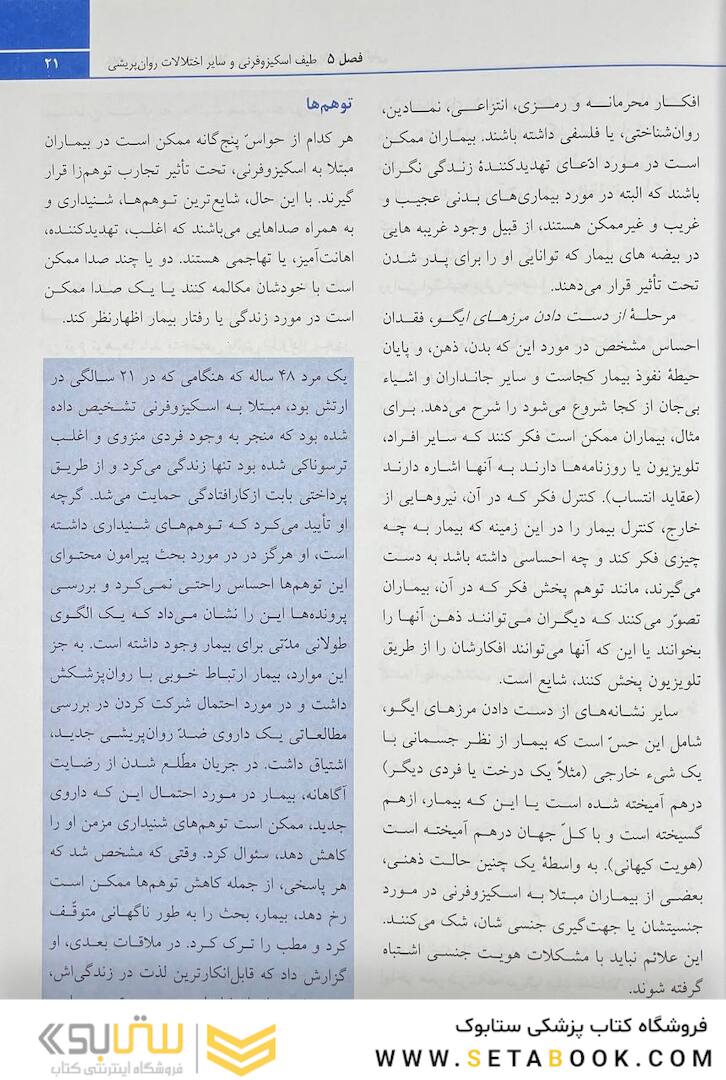 فصل ۵ طیف اسکیزوفرنی و سایر اختلالات روان‌پریشی
۲۱
افکار محرمانه و رمزی، انتزاعی، نمادین،
روان‌شناختی، یا فلسفی داشته باشند. بیماران ممکن
است در مورد ادّعای تهدیدکنندهٔ زندگی نگران
باشند که البته در مورد بیماری‌های بدنی عجیب و
غریب و غیرممکن هستند، از قبیل وجود غریبه هایی
در بیضه های بیمار که توانایی او را برای پدر شدن
تحت تأثیر قرار می‌دهند.
مرحلهٔ از دست دادن مرزهای ایگو، فقدان
احساس مشخص در مورد این که بدن، ذهن، و پایان
حیطهٔ نفوذ بیمار کجاست و سایر جانداران و اشیاء
بی‌جان از کجا شروع می‌شود را شرح می‌دهد. برای
مثال، بیماران ممکن است فکر کنند که سایر افراد،
تلویزیون یا روزنامه‌ها دارند به آنها اشاره دارند
(عقاید انتساب). کنترل فکر که در آن، نیروهایی از
خارج، کنترل بیمار را در این زمینه که بیمار به چه
چیزی فکر کند و چه احساسی داشته باشد به دست
می‌گیرند، مانند توهم پخش فکر که در آن، بیماران
تصوّر می‌کنند که دیگران می‌توانند ذهن آنها را
بخوانند یا این که آنها می‌توانند افکارشان را از طریق
تلویزیون پخش کنند، شایع است.
سایر نشانه‌های از دست دادن مرزهای ایگو،
شامل این حسّ است که بیمار از نظر جسمانی با
یک شیء خارجی (مثلاً یک درخت یا فردی دیگر)
درهم آمیخته شده است یا این که بیمار، ازهم
گسیخته است و با کلّ جهان درهم آمیخته است
(هویت کیهانی). به واسطهٔ یک چنین حالت ذهنی،
بعضی از بیماران مبتلا به اسکیزوفرنی در مورد
جنسیتشان یا جهت‌گیری جنسی شان، شک می‌کنند.
این علائم نباید با مشکلات هویت جنسی اشتباه
گرفته شوند.
توهم‌ها
هر کدام از حواسّ پنج‌گانه ممکن است در بیماران
مبتلا به اسکیزوفرنی، تحت تأثیر تجارب توهم‌زا قرار
گیرند. با این حال، شایع‌ترین توهم‌ها، شنیداری و
به همراه صداهایی می‌باشند که اغلب، تهدیدکننده،
اهانت‌آمیز، یا تهاجمی هستند. دو یا چند صدا ممکن
است با خودشان مکالمه کنند یا یک صدا ممکن
است در مورد زندگی یا رفتار بیمار اظهارنظر کند.
یک مرد ۴۸ ساله که هنگامی که در ۲۱ سالگی در
ارتش بود، مبتلا به اسکیزوفرنی تشخیص داده
شده بود که منجر به وجود فردی منزوی و اغلب
ترسوناکی شده بود تنها زندگی می‌کرد و از طریق
پرداختی بابت ازکارافتادگی حمایت می‌شد. گرچه
او تأیید می‌کرد که توهم‌های شنیداری داشته
است، او هرگز در در مورد بحث پیرامون محتوای
این توهم‌ها احساس راحتی نمی‌کرد و بررسی
پرونده‌ها این را نشان می‌داد که یک الگوی
طولانی مدّتی برای بیمار وجود داشته است. به جز
این موارد، بیمار ارتباط خوبی با روان‌پزشکش
داشت و در مورد احتمال شرکت کردن در بررسی
مطالعاتی یک داروی ضدّ روان‌پریشی جدید،
اشتیاق داشت. در جریان مطّلع شدن از رضایت
آگاهانه، بیمار در مورد احتمال این که داروی
جدید، ممکن است توهم‌های شنیداری مزمن او را
کاهش دهد، سئوال کرد. وقتی که مشخص شد که
هر پاسخی، از جمله کاهش توهم‌ها ممکن است
رخ دهد، بیمار، بحث را به طور ناگهانی متوقّف
کرد و مطب را ترک کرد. در ملاقات بعدی، او
گزارش داد که قابل‌انکارترین لذت در زندگی‌اش،
فروشگاه کتاب پزشکی ستابوک
WWW.SETABOOK.COM
ستابوک
فروشگاه اینترنتی کتاب